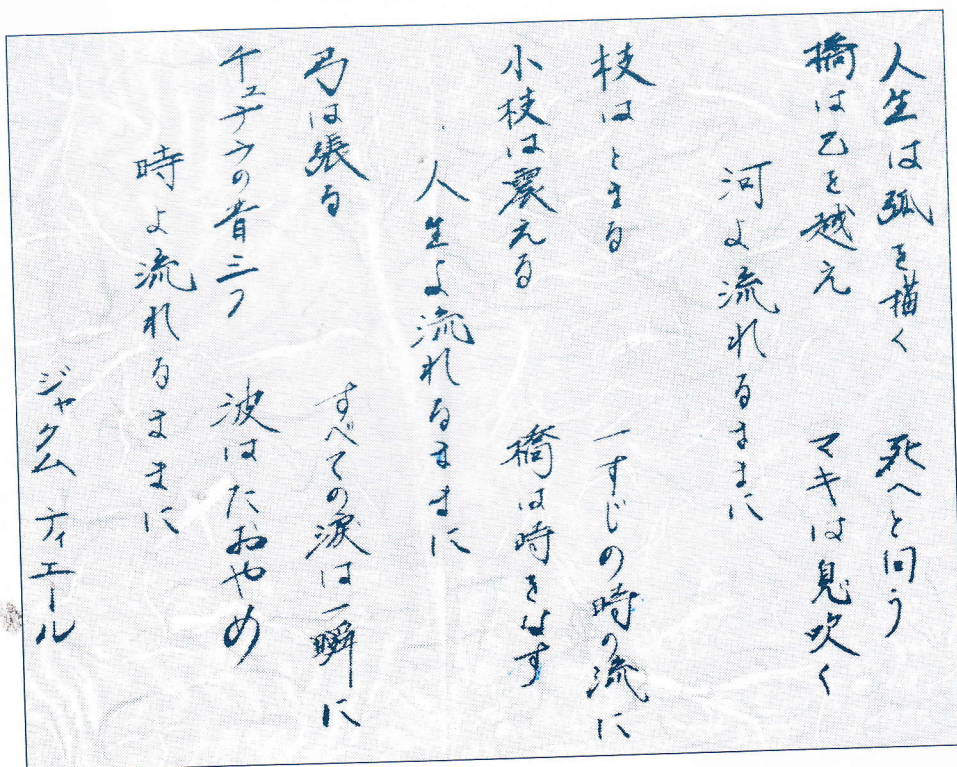 人生は弧を描く　死へと向う
橋は乙を越え　マキは息吹く
河よ流れるままに
枝はとまる　一すじの時の流に
小枝は震える　橋は時をなす
人生よ流れるままに
弓は張る　すべての涙は一瞬に
の音三つ　波はたおやめ
時よ流れるままに
ジャクム ティエール